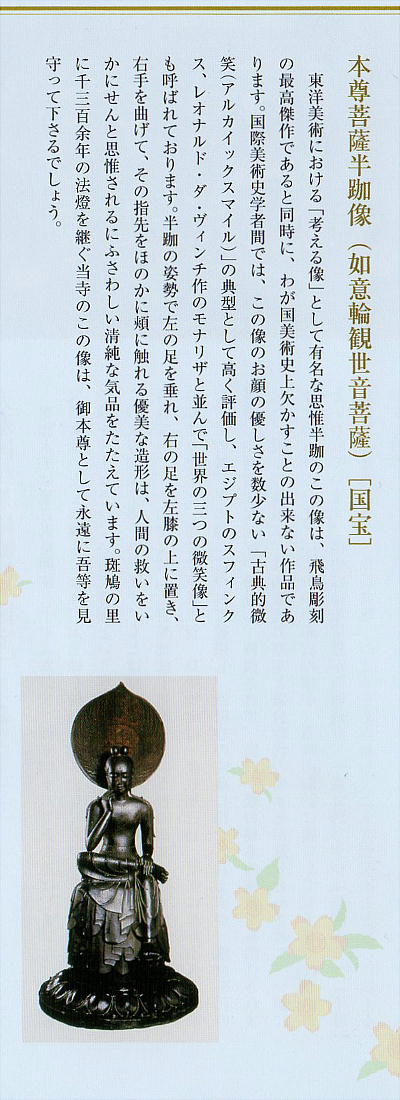 本尊菩薩半跏像（如意輪観世音菩薩）［国宝］
東洋美術における「考える像」として有名な思惟半跏のこの像は、飛鳥彫刻
の最高傑作であると同時に、わが国美術史上欠かすことの出来ない作品であ
ります。国際美術史学者間では、この像のお顔の優しさを数少ない「古典的微
笑（アルカイックスマイル）」の典型として高く評価し、エジプトのスフィンク
ス、レオナルド・ダ・ヴィンチ作のモナリザと並んで「世界の三つの微笑像」と
も呼ばれております。半跏の姿勢で左の足を垂れ、右の足を左膝の上に置き、
右手を曲げて、その指先をほのかに頬に触れる優美な造形は、人間の救いをい
かにせんと思惟されるにふさわしい清純な気品をたたえています。斑鳩の里
に千三百余年の法燈を継ぐ当寺のこの像は、御本尊として永遠に吾等を見
守って下さるでしょう。